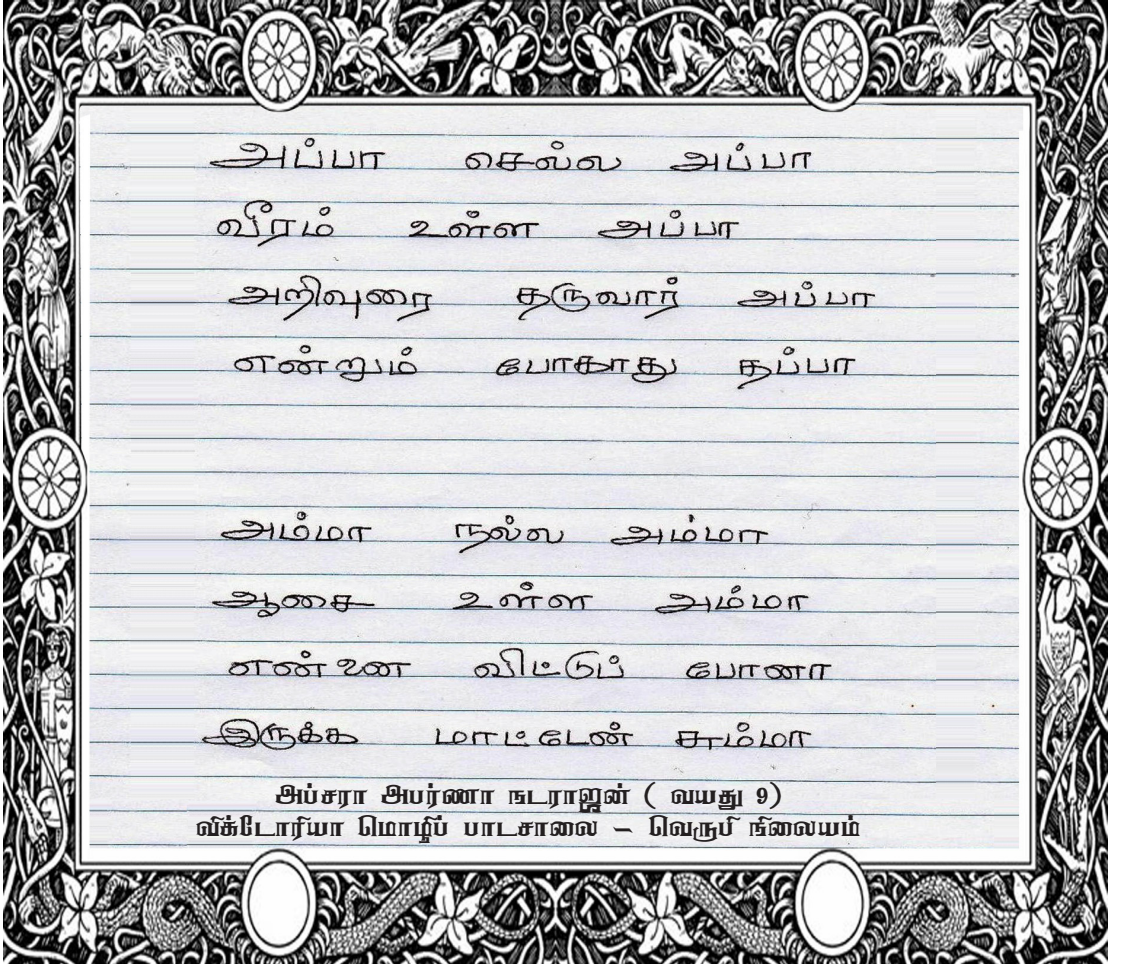 அப்பா செல்ல அப்பா
வீரம் உள்ள அப்பா
அறிவுரை தருவார் அப்பா
என்றும் போகாது தப்பா
அம்மா நல்ல அம்மா
ஆசை உள்ள அம்மா
என்னை விட்டுப் போனா
இருக்க மாட்டேன் சும்மா
அப்சரா அபர்ணா நடராஜன் ( வயது 9)
விக்டோரியா மொழிப் பாடசாலை – வெருபி நிலையம்